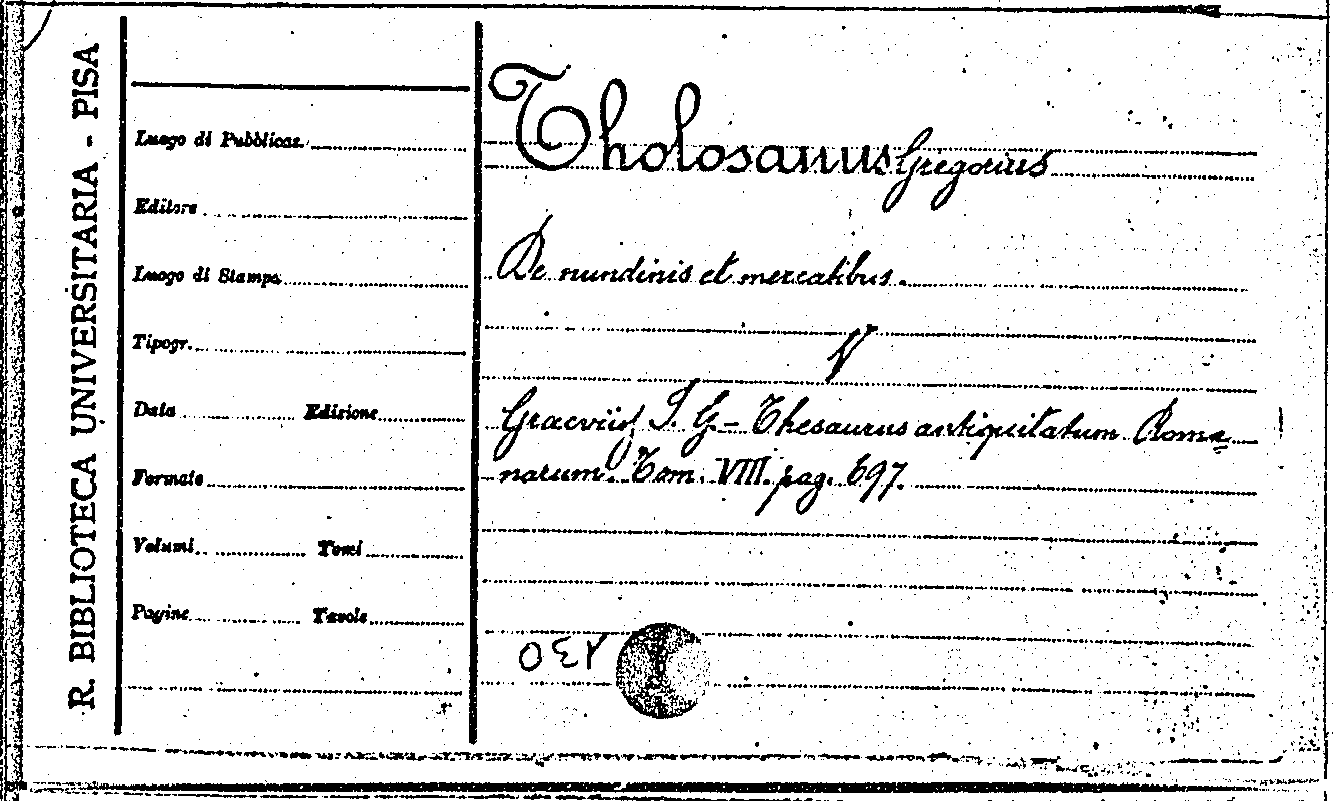 R. BIBLIOTECA UNIVERSITARIA - PISA
Luogo di Pubblicaz.
Editore
Luogo di Stampa
Tipogr.
Data Edizione
Formato
Volumi Tomi
Pagine Tavole
Tholosanus Gregorius
De nundinis et mercatibus.
V
Graevii J. G. - Thesaurus antiquitatum Roma=
narum. Tom. VIII. pag. 697.